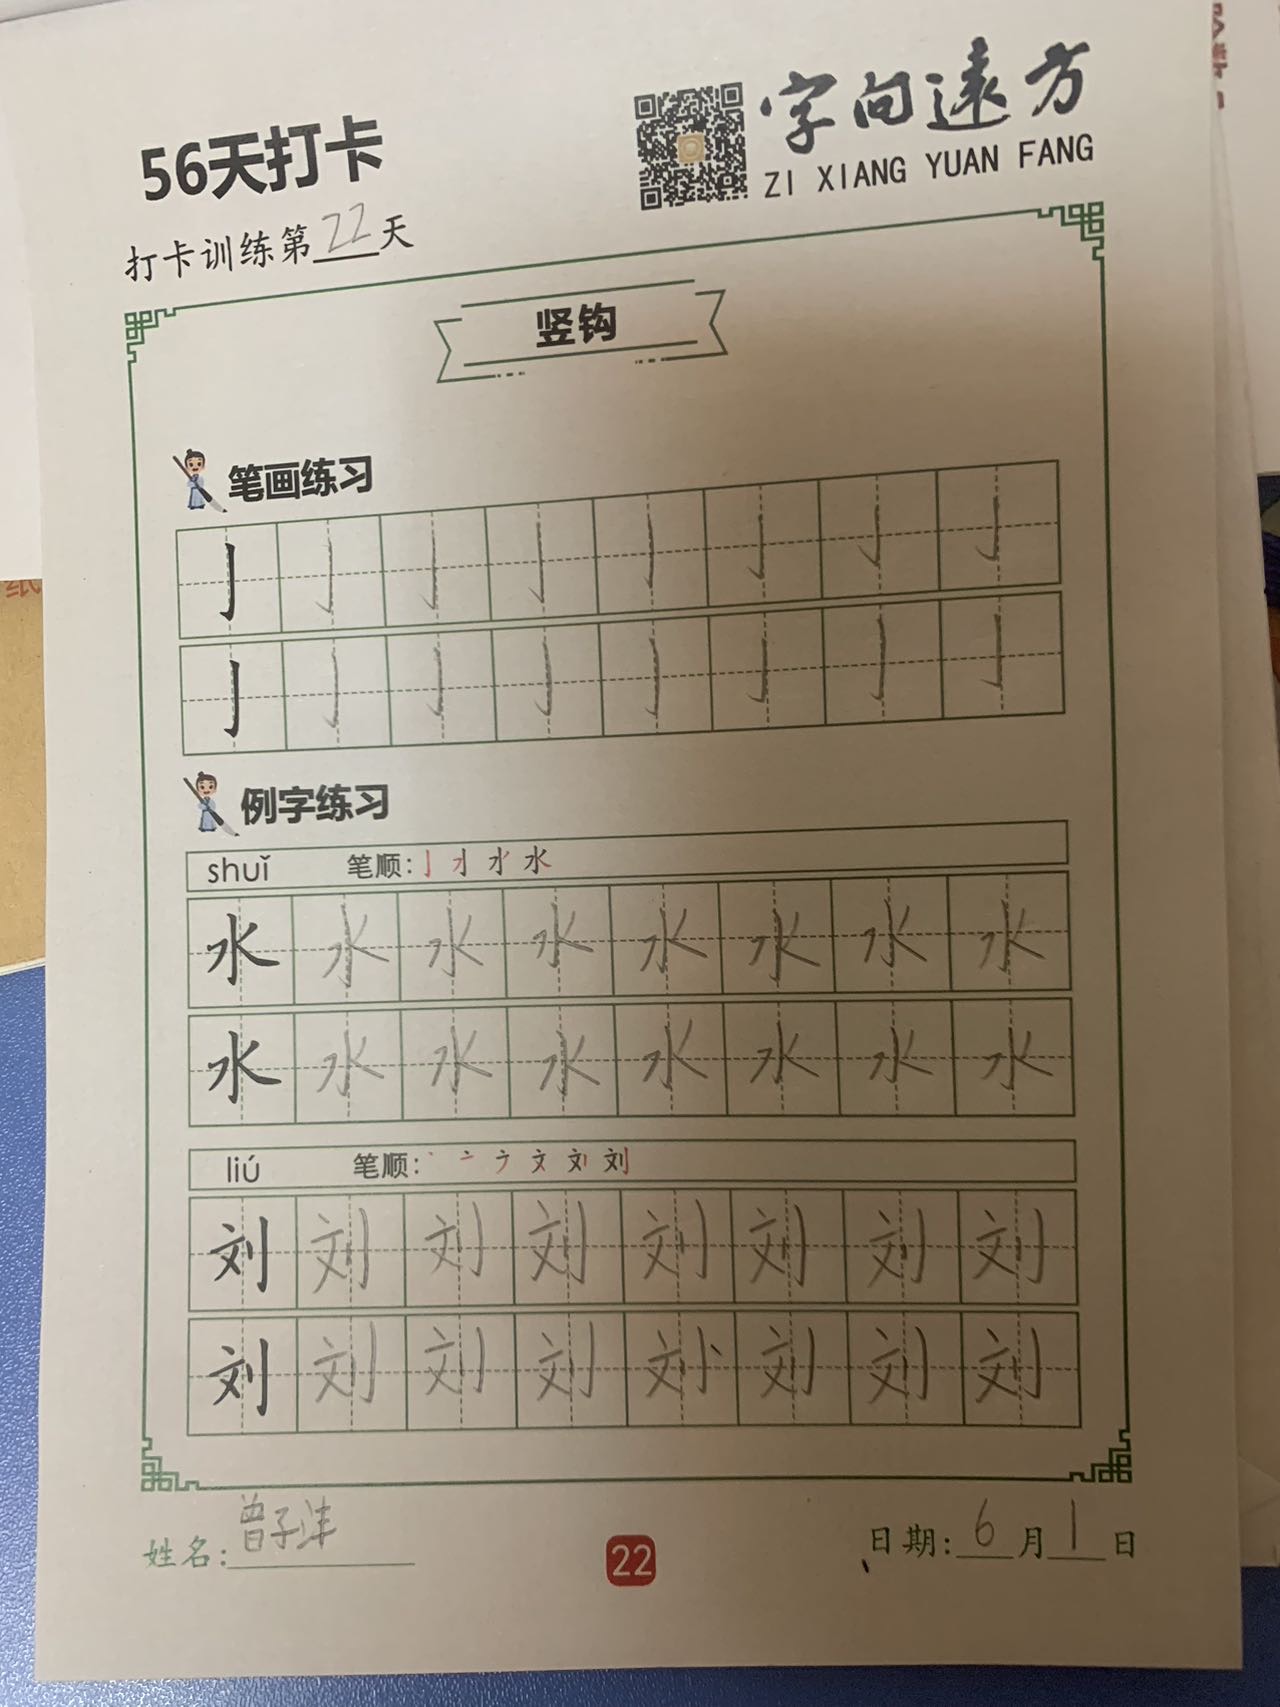 56天打卡
字向遠方
ZI XIANG YUAN FANG
打卡训练第22天
竖钩
笔画练习
亅 亅 亅 亅 亅 亅 亅 亅
亅 亅 亅 亅 亅 亅 亅 亅
例字练习
shuǐ 笔顺: 水
水 水 水 水 水 水 水 水
水 水 水 水 水 水 水 水
liú 笔顺: 文 刘
刘 刘 刘 刘 刘 刘 刘 刘
刘 刘 刘 刘 刘 刘 刘 刘
姓名: 曾子沣
22
日期: 6月1日